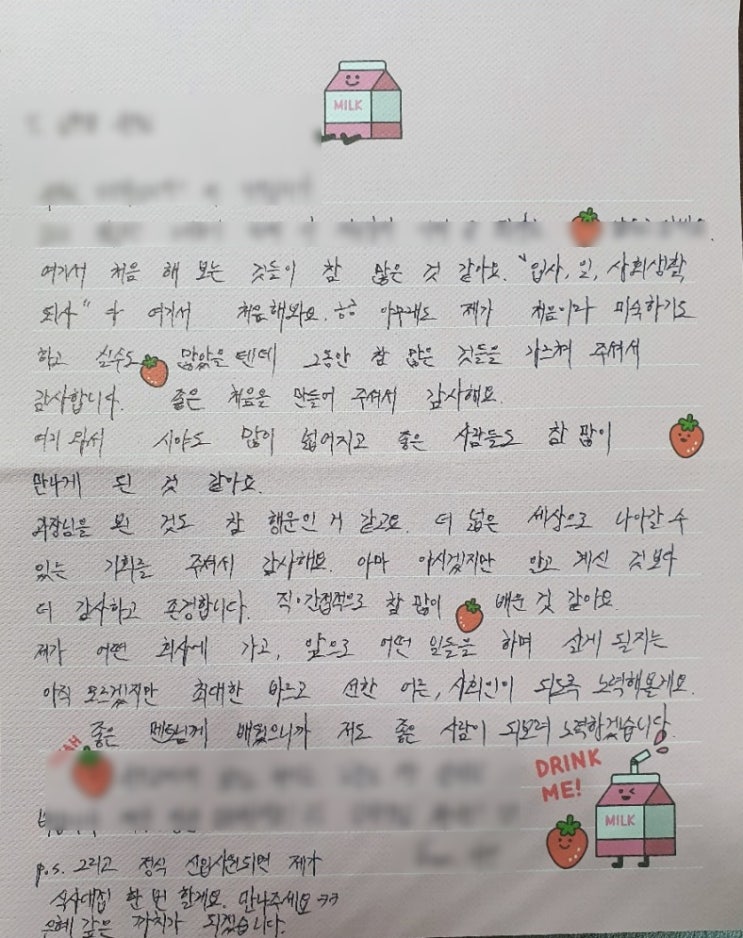 MILK
여기서 처음 해 보는 것들이 참 많은 것 같아요. "입사, 일, 사회생활
퇴사" 다 여기서 처음해봐요. ㅎㅎ 아무래도 제가 처음이라 미숙하기도
하고 실수도 많았을텐데 그동안 참 많은 것들을 가르쳐 주셔서
감사합니다. 좋은 처음을 만들어 주셔서 감사해요.
여기 와서 시야도 많이 넓어지고 좋은 사람들도 참 많이
만나게 된 것 같아요.
과장님을 뵌 것도 참 행운인 거 같고요. 더 넓은 세상으로 나아갈 수
있는 기회를 주셔서 감사해요. 아마 아시겠지만 알고 계신 것보다
더 감사하고 존경합니다. 직·간접적으로 참 많이 배운 것 같아요.
제가 어떤 회사에 가고, 앞으로 어떤 일들을 하며 살게 될지는
아직 모르겠지만 최대한 바르고 선한 어른, 사회인이 되도록 노력해볼게요.
좋은 멘토님께 배웠으니까 저도 좋은 사람이 되보려 노력하겠습니당.
DRINK
ME!
MILK
p.s. 그리고 정식 신입사원되면 제가
식사대접 한 번 할게요. 만나주세요 ㅋㅋ
은혜 갚은 까치가 되겠습니다.